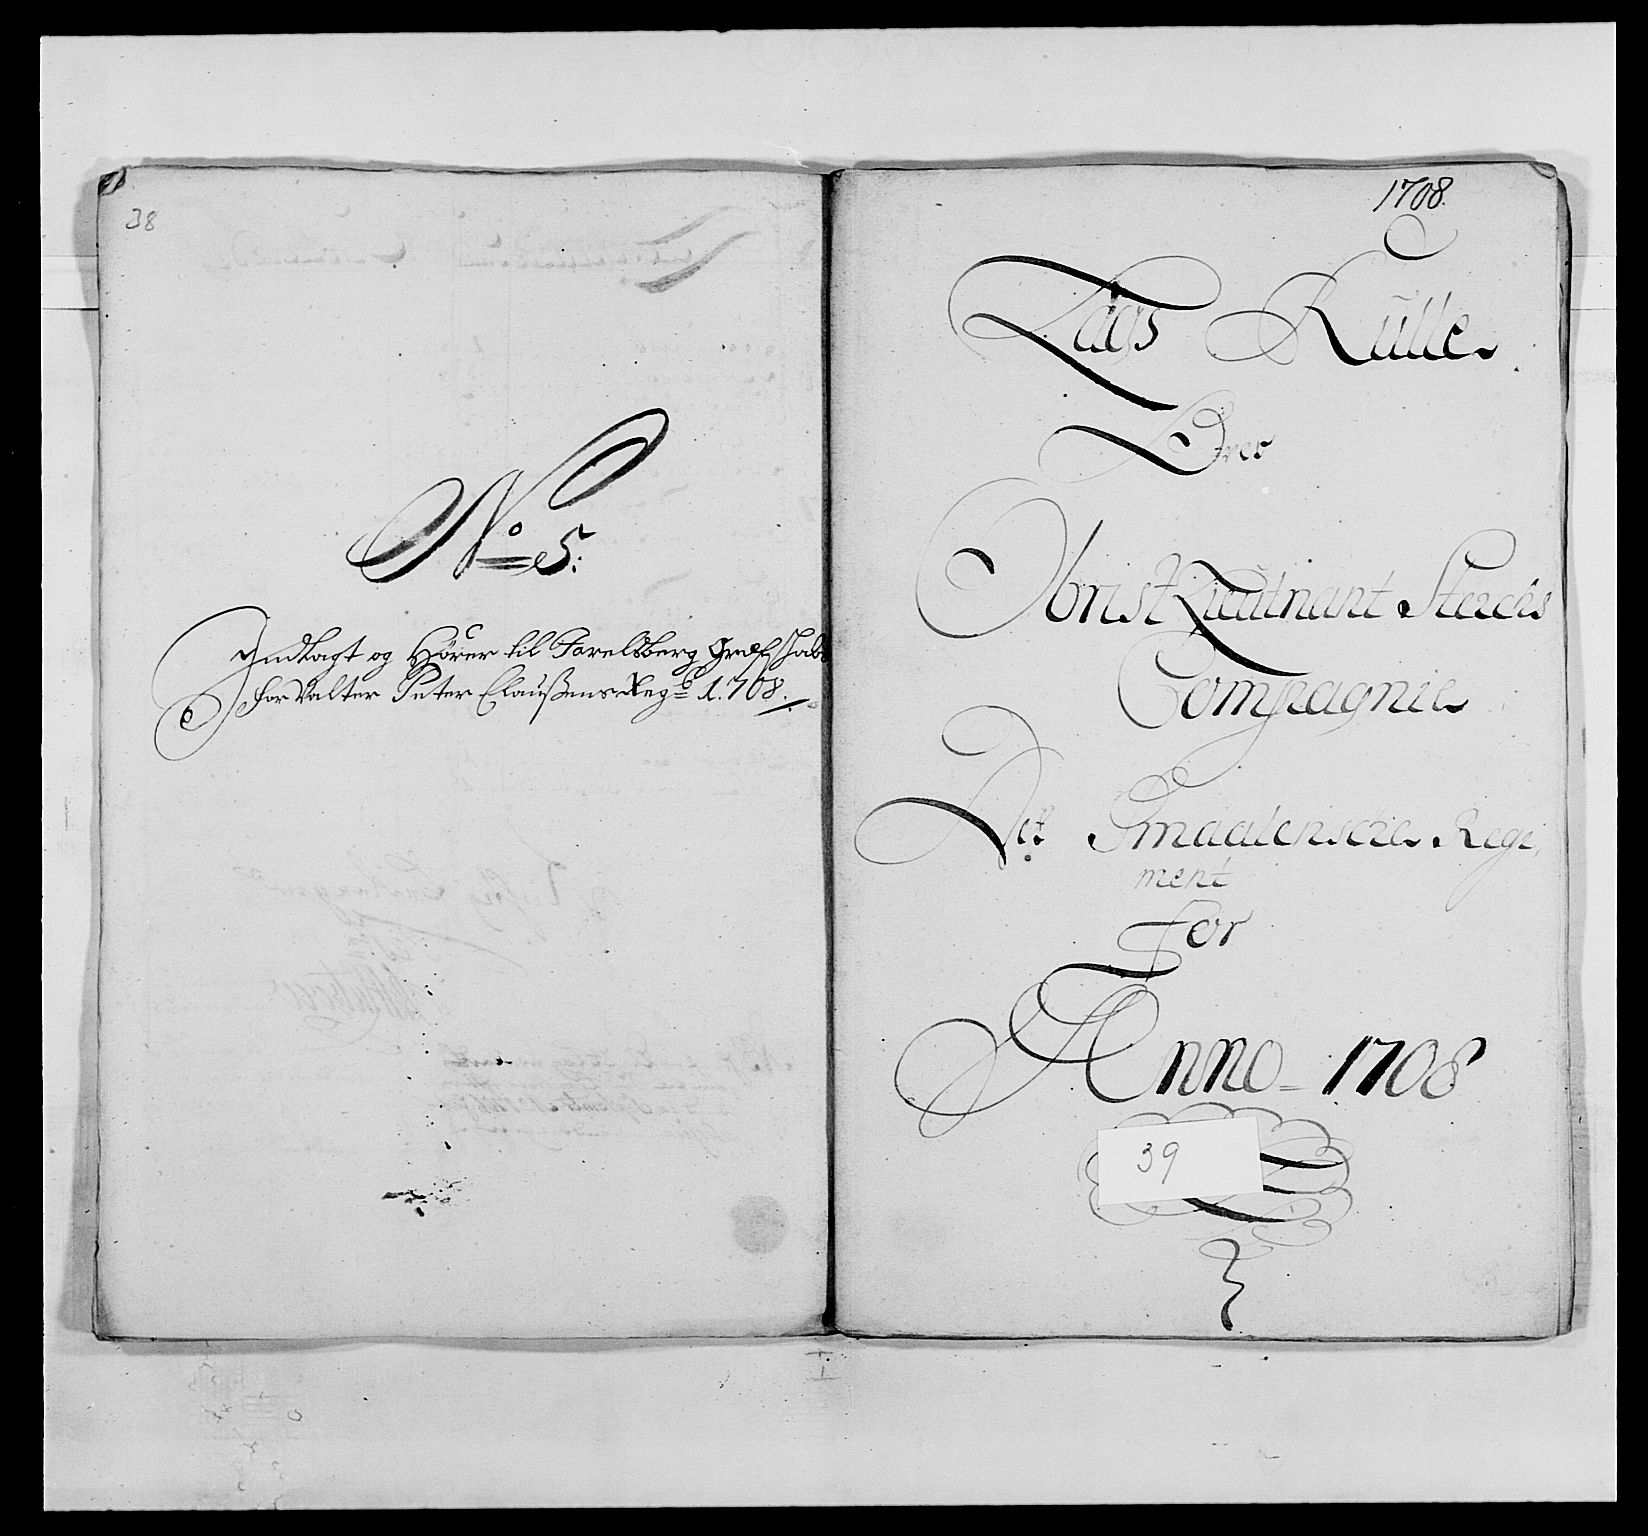 38
No 5:
Indlagt og Hörer til Jarelsberg Grefschabs
forValter Peter Claußens Regb 1.708.
1708.
Lags Rulle
Over
Obrist Lieutnant Sterchs
Compagnie
Det Smaalensche Regi,
ment
for
Anno 1708
39